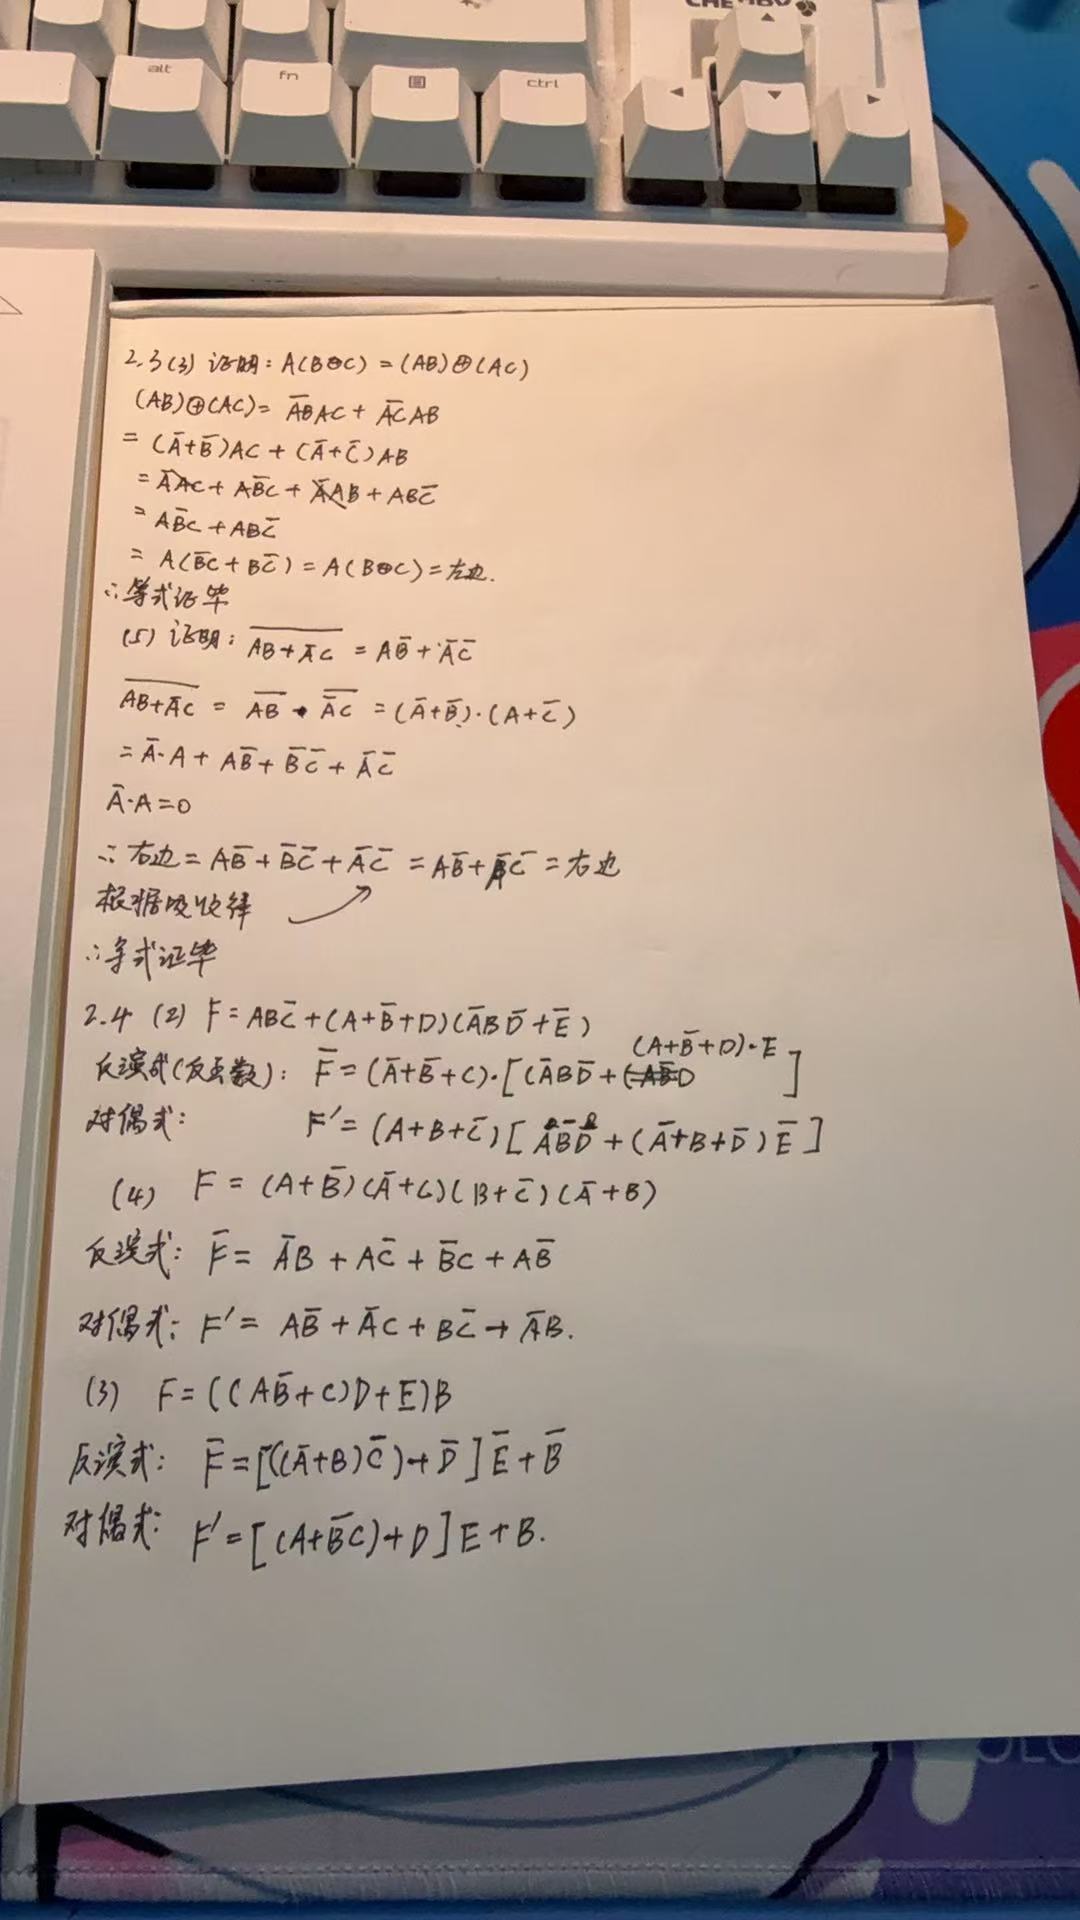 alt
fn
ctrl
2.3(3) 证明: A(B⊕C) = (AB)⊕(AC)
(AB)⊕(AC) = A̅B̅AC + A̅C̅AB
= (A̅+B̅)AC + (A̅+C̅)AB
= A̅AC + AB̅C + A̅AB + ABC̅
= AB̅C + ABC̅
= A(B̅C + BC̅) = A(B⊕C) = 左边.
∴等式证毕
(5) 证明: \overline{AB+A̅C} = AB̅ + A̅C̅
\overline{AB+A̅C} = \overline{AB} · \overline{A̅C} = (A̅+B̅)·(A+C̅)
= A̅·A + AB̅ + B̅C̅ + A̅C̅
A̅·A=0
∴ 右边 = AB̅ + B̅C̅ + A̅C̅ = AB̅ + A̅C̅ = 右边
根据吸收律
∴等式证毕
2.4 (2) F = ABC̅ + (A+B̅+D)(A̅BD̅+E̅)
反演式(反函数): F̅ = (A̅+B̅+C)·[(A̅BD̅ + (A+B̅+D)·E]
对偶式: F' = (A+B+C̅)[AB̅D + (A̅+B+D̅)E̅]
(4) F = (A+B̅)(A̅+C)(B+C̅)(A̅+B)
反演式: F̅ = A̅B + AC̅ + B̅C + AB̅
对偶式: F' = AB̅ + A̅C + BC̅ + A̅B.
(3) F = ((AB̅+C)D+E)B
反演式: F̅ = [((A̅+B)C̅)+D̅]E̅+B̅
对偶式: F' = [(A+B̅C)+D]E+B.